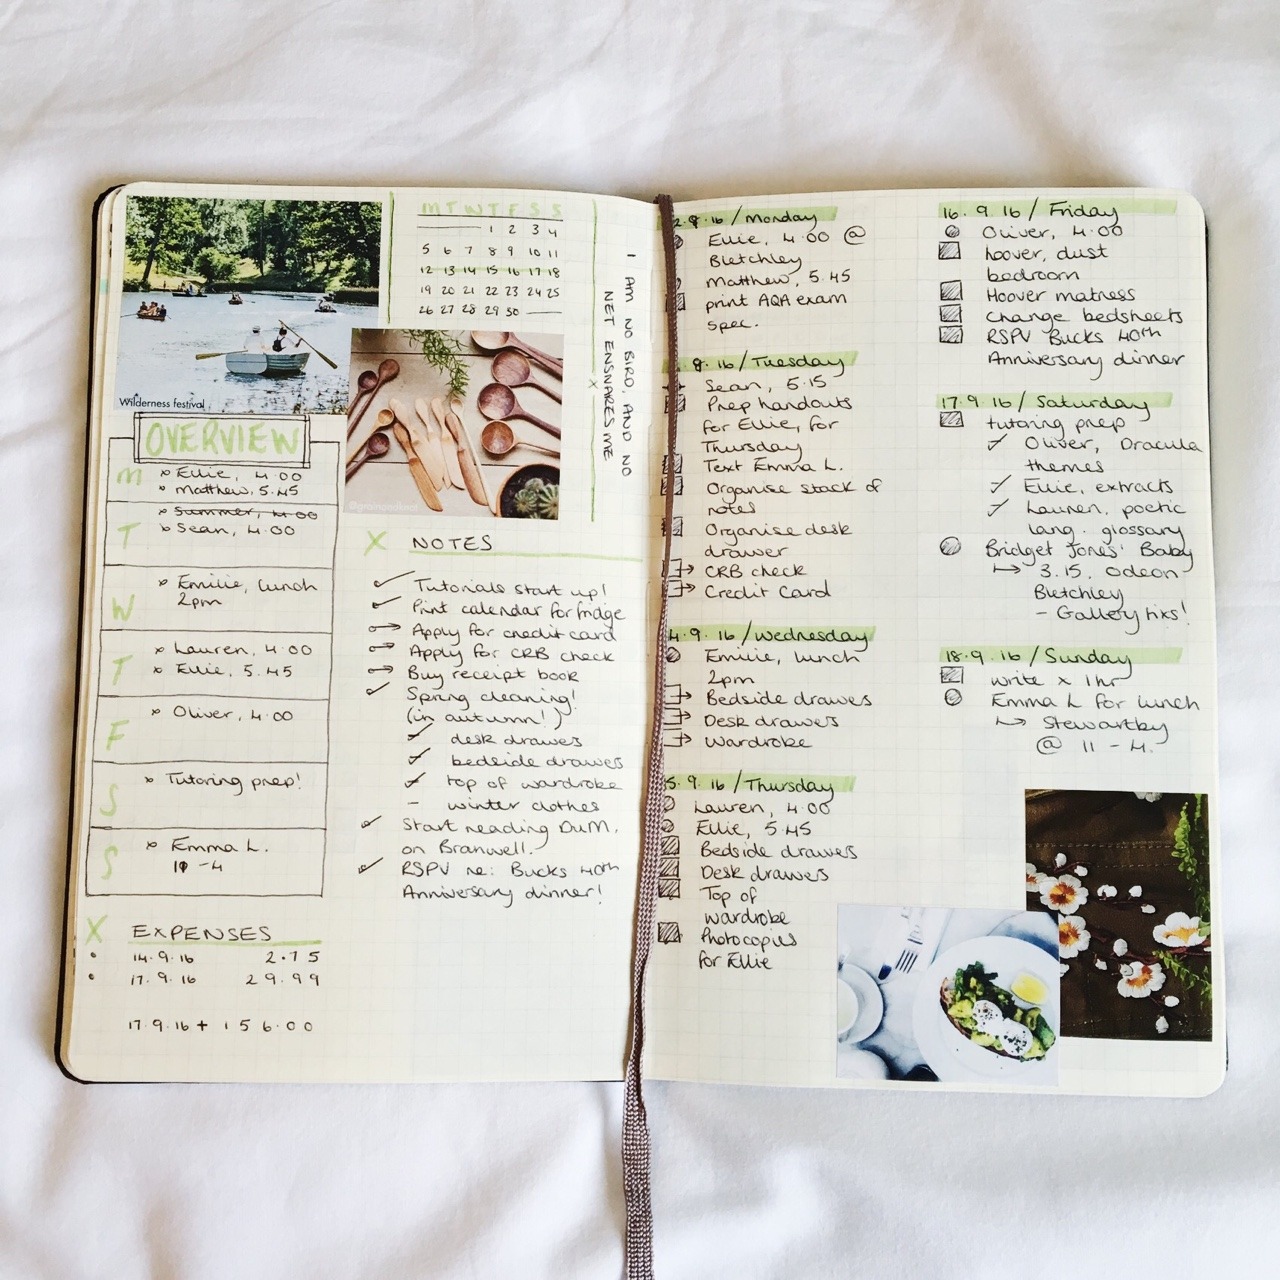 Wilderness festival
M T W T F S S
1 2 3 4
5 6 7 8 9 10 11
12 13 14 15 16 17 18
19 20 21 22 23 24 25
26 27 28 29 30
I AM NO BIRD, AND NO
NET ENSNARES ME
OVERVIEW
M
Ellie, 4.00
Matthew, 5.45
T
Summer, 4.00
Sean, 4.00
W
Emilie, lunch
2pm
T
Lauren, 4.00
Ellie, 5.45
F
Oliver, 4.00
S
Tutoring prep!
S
Emma L.
11 - 4
X EXPENSES
14.9.16 2.75
17.9.16 29.99
17.9.16 + 156.00
X NOTES
Tutorials start up!
Print calendar for fridge
Apply for credit card
Apply for CRB check
Buy receipt book
Spring cleaning!
(in autumn!)
desk drawes
bedside drawes
top of wardrobe
- winter clothes
Start reading DuM.
on Branwell.
RSPV re: Bucks 40th
Anniversary dinner!
2.9.16 / Monday
Ellie, 4.00 @
Bletchley
Matthew, 5.45
print AQA exam
spec.
9.16 / Tuesday
Sean, 5.15
Prep handouts
for Ellie, for
Thursday
Text Emma L.
Organise stack of
notes
Organise desk
drawer
CRB check
Credit Card
4.9.16 / Wednesday
Emilie, lunch
2pm
Bedside drawes
Desk drawes
Wardrobe
5.9.16 / Thursday
Lauren, 4.00
Ellie, 5.45
Bedside drawers
Desk drawers
Top of
wardrobe
Photocopies
for Ellie
16.9.16 / Friday
Oliver, 4.00
hoover, dust
bedroom
Hoover matress
Change bedsheets
RSPV Bucks 40th
Anniversary dinner
17.9.16 / Saturday
tutoring prep
Oliver, Dracula
themes
Ellie, extracts
Lauren, poetic
lang. glossary
Bridget Jones' Baby
3.15, Odeon
Bletchley
- Gallery tixs!
18.9.16 / Sunday
write x 1hr
Emma L for lunch
Stewartby
@ 11 - 4.